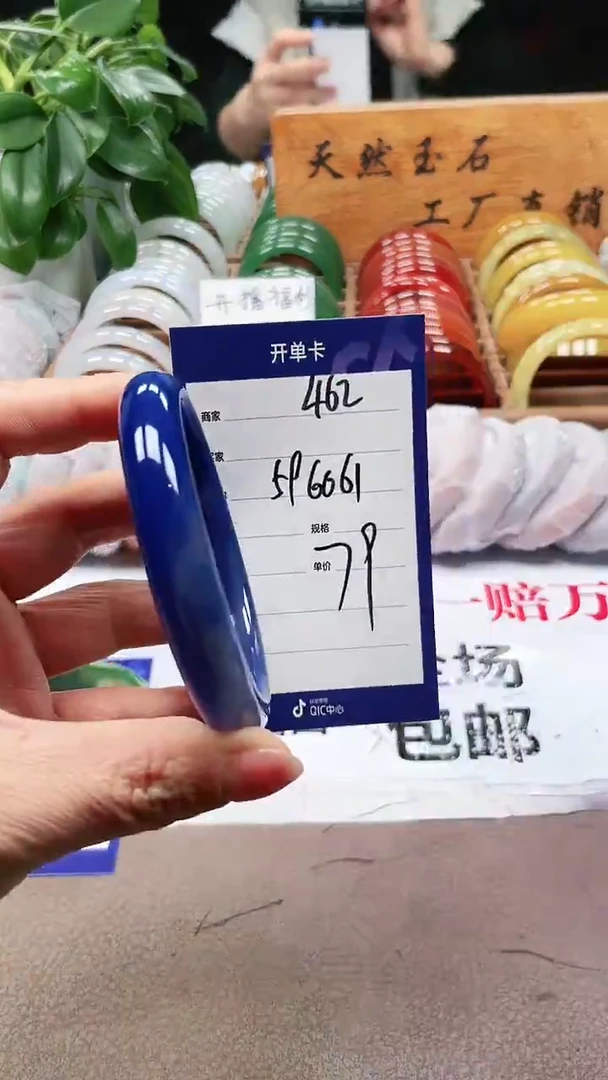 天然玉石
工厂直销
开播福利
开单卡
商家
462
家
596061
规格
单价
79
QIC中心
一赔万
全场
包邮